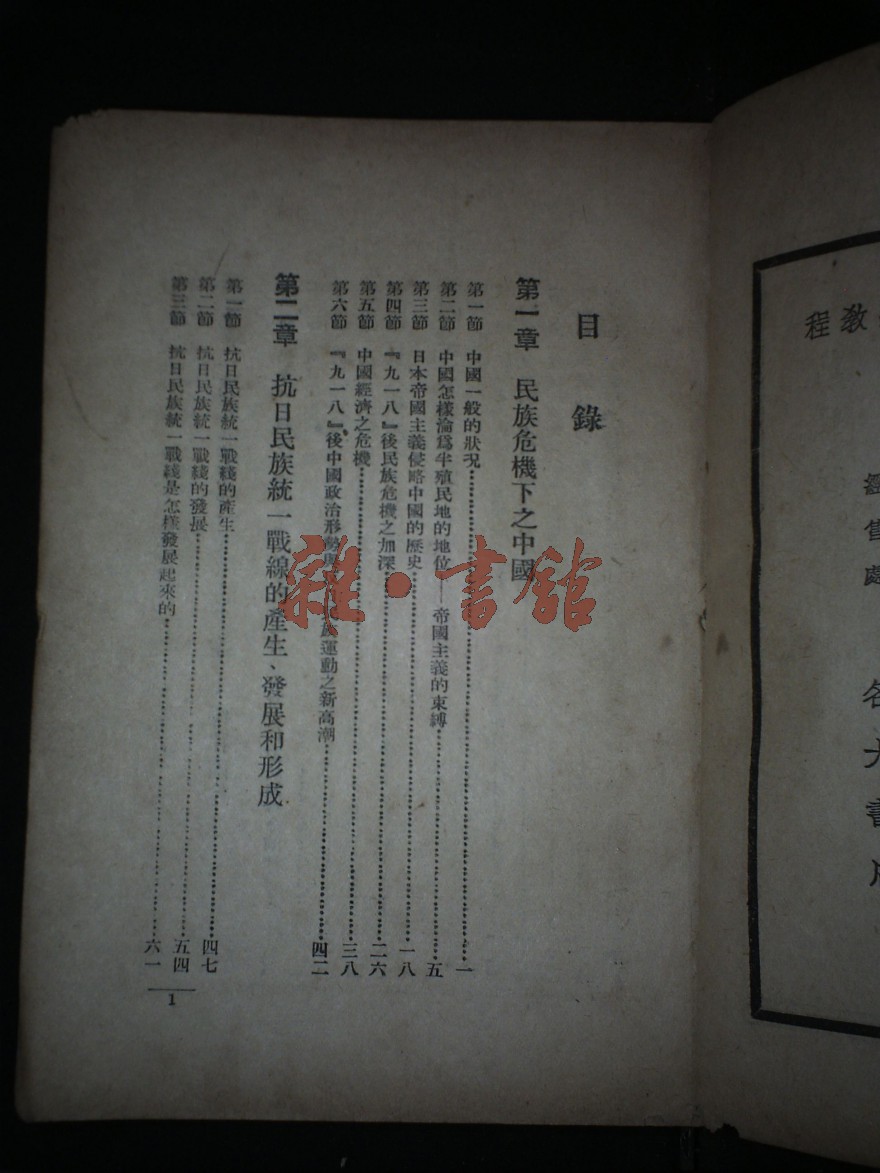 教程
經售處 各大書
目錄
第一章 民族危機下之中國
第一節 中國一般的狀况 一
第二節 中國怎樣淪爲半殖民地的地位——帝國主義的束縛 五
第三節 日本帝國主義侵略中國的歷史 一八
第四節 『九一八』後民族危機之加深 二六
第五節 中國經濟之危機 三八
第六節 『九一八』後中國政治形勢 運動之新高潮 四二
第二章 抗日民族統一戰線的產生、發展和形成
第一節 抗日民族統一戰綫的產生 四七
第二節 抗日民族統一戰綫的發展 五四
第三節 抗日民族統一戰綫是怎樣發展起來的 六一
1
雜·書館